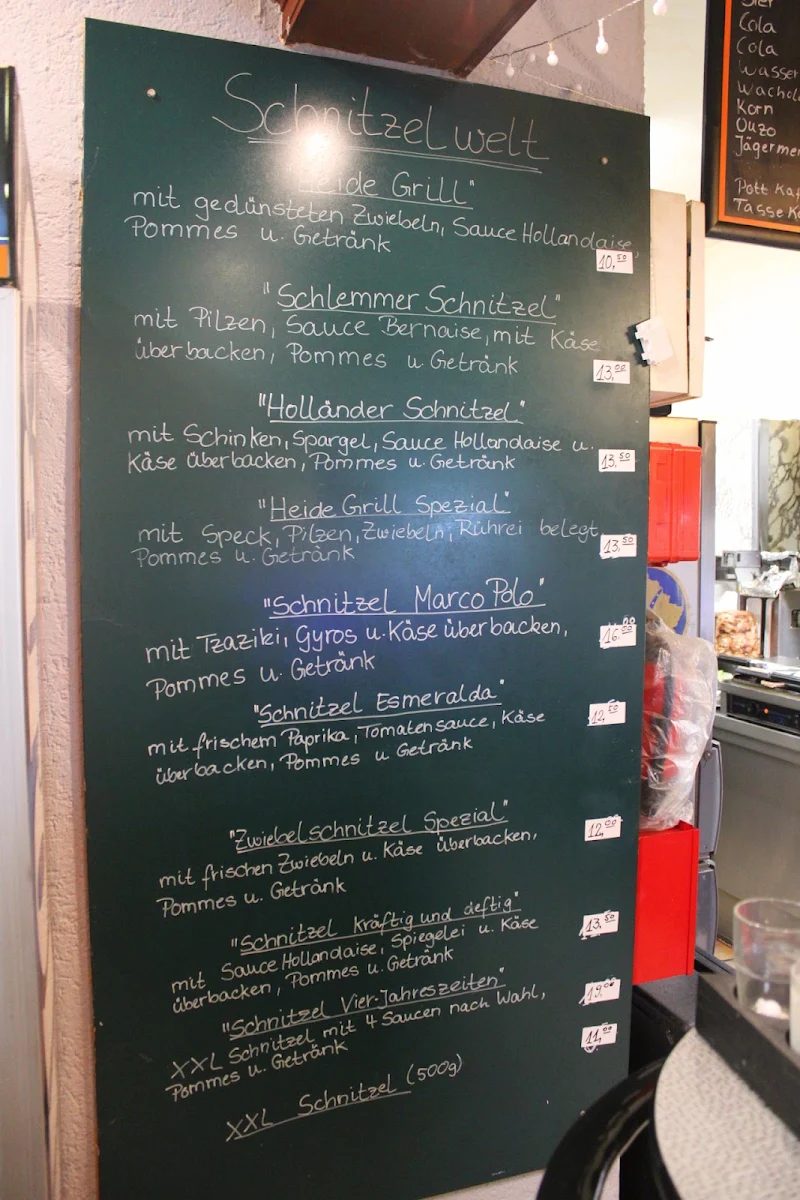 Schnitzelwelt
"Heide Grill"
mit gedünsteten Zwiebeln, Sauce Hollandaise,
Pommes u. Getränk
10,50
"Schlemmer Schnitzel"
mit Pilzen, Sauce Bernaise, mit Käse
überbacken, Pommes u Getränk
13,00
"Holländer Schnitzel"
mit Schinken, Spargel, Sauce Hollandaise u.
Käse überbacken, Pommes u. Getränk
13,50
"Heide Grill Spezial"
mit Speck, Pilzen, Zwiebeln, Rührei belegt
Pommes u. Getränk
13,50
"Schnitzel Marco Polo"
mit Tzaziki, Gyros u. Käse überbacken,
Pommes u. Getränk
16,00
"Schnitzel Esmeralda"
mit frischem Paprika, Tomatensauce, Käse
überbacken, Pommes u Getränk
12,50
"Zwiebelschnitzel Spezial"
mit frischen Zwiebeln u. Käse überbacken,
Pommes u. Getränk
12,00
"Schnitzel kräftig und deftig"
mit Sauce Hollandaise, Spiegelei u. Käse
überbacken, Pommes u. Getränk
13,50
"Schnitzel Vier-Jahreszeiten"
XXL Schnitzel mit 4 Saucen nach Wahl,
Pommes u. Getränk
19,00
XXL Schnitzel (500g)
11,00
Cola
Cola
Wasser
Korn
Ouzo
Jägermei
Pott Kaf
Tasse Ka